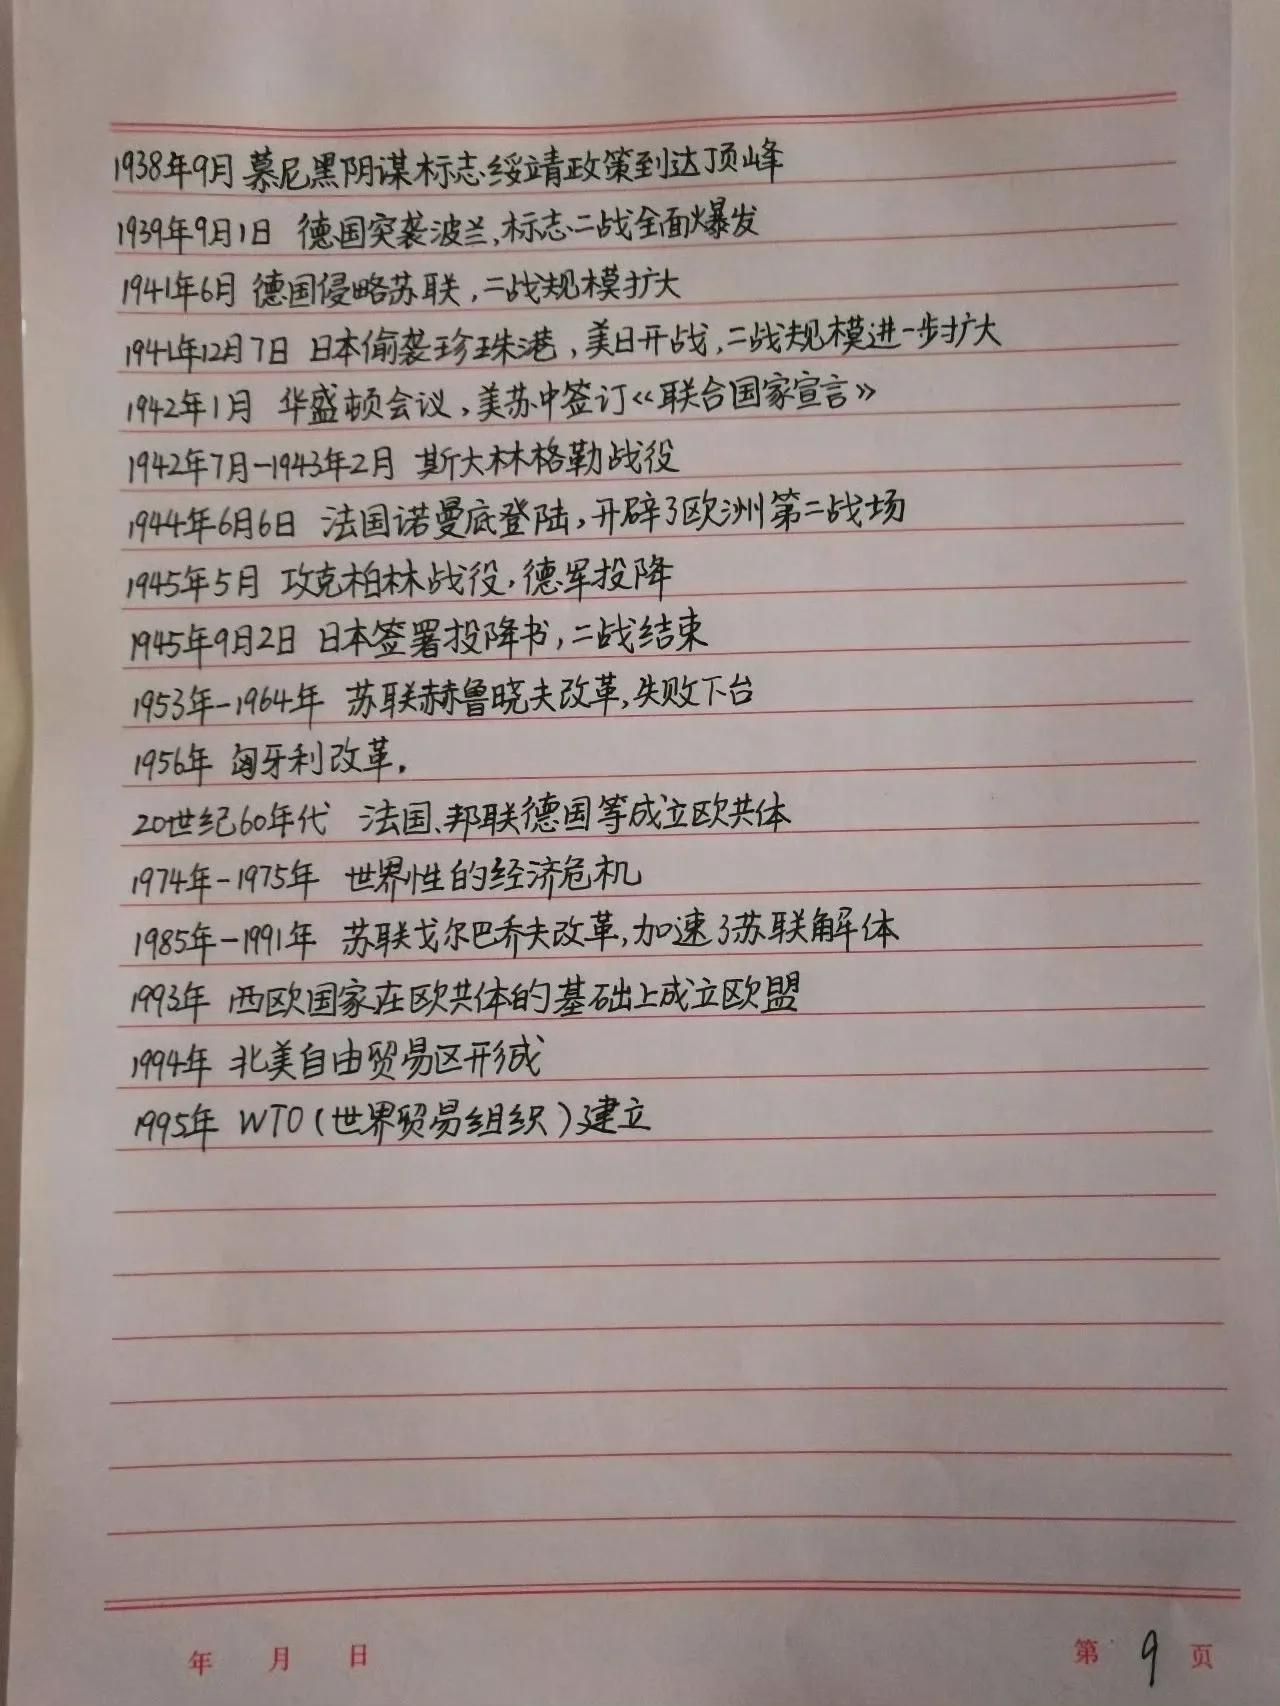 1938年9月 慕尼黑阴谋标志绥靖政策到达顶峰
1939年9月1日 德国突袭波兰,标志二战全面爆发
1941年6月 德国侵略苏联,二战规模扩大
1941年12月7日 日本偷袭珍珠港,美日开战,二战规模进一步扩大
1942年1月 华盛顿会议,美苏中签订《联合国家宣言》
1942年7月-1943年2月 斯大林格勒战役
1944年6月6日 法国诺曼底登陆,开辟了欧洲第二战场
1945年5月 攻克柏林战役,德军投降
1945年9月2日 日本签署投降书,二战结束
1953年-1964年 苏联赫鲁晓夫改革,失败下台
1956年 匈牙利改革.
20世纪60年代 法国、邦联德国等成立欧共体
1974年-1975年 世界性的经济危机
1985年-1991年 苏联戈尔巴乔夫改革,加速了苏联解体
1993年 西欧国家在欧共体的基础上成立欧盟
1994年 北美自由贸易区形成
1995年 WTO(世界贸易组织)建立
年 月 日 第 9 页